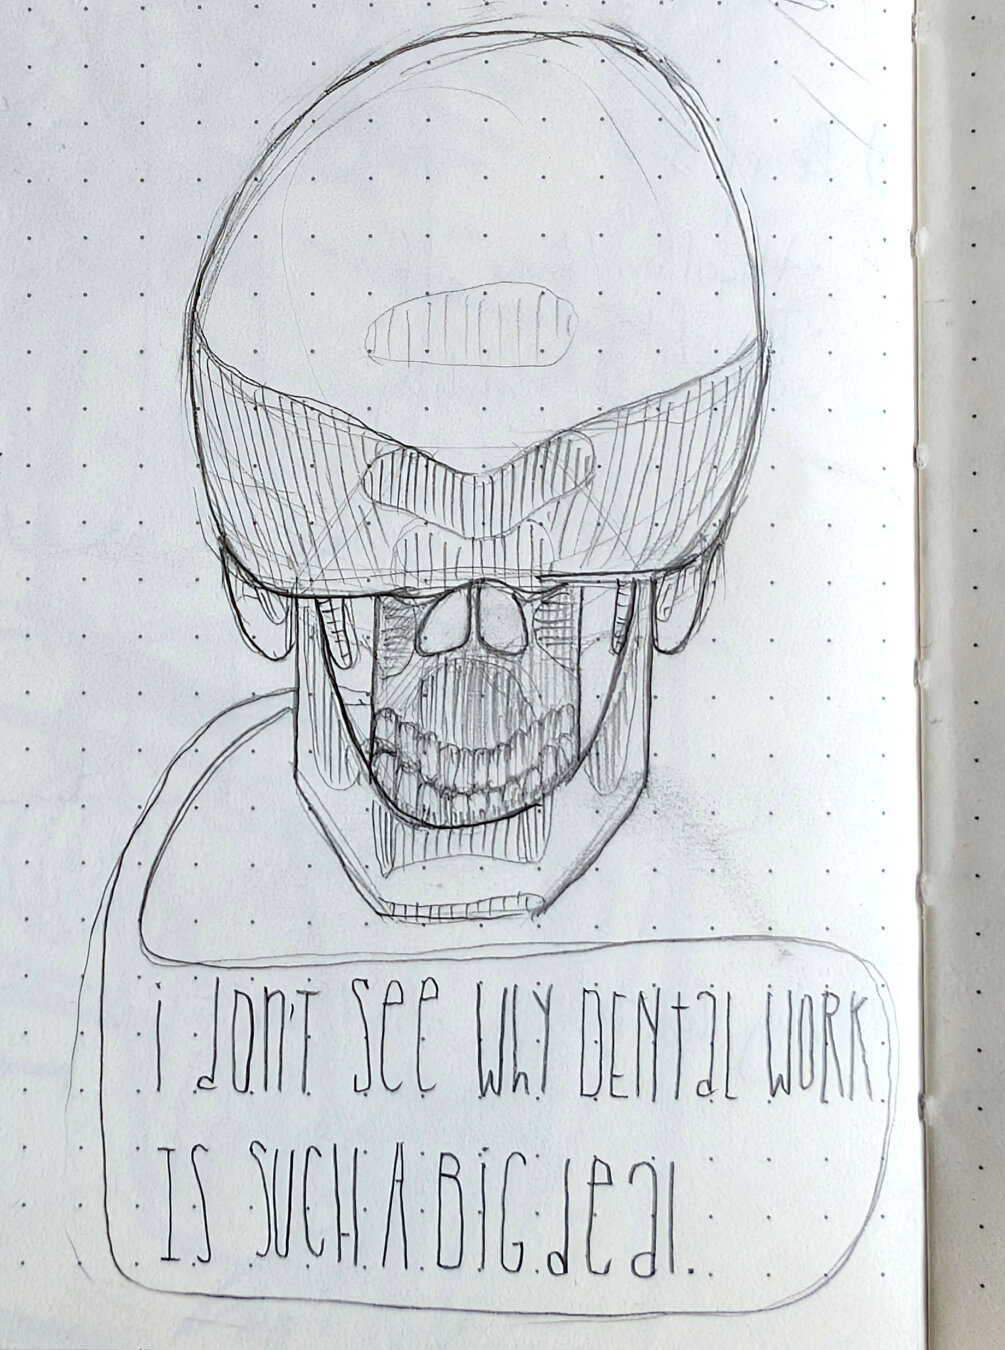 i don't see WhY DENtal WORK
IS SUCH A BiG deal.